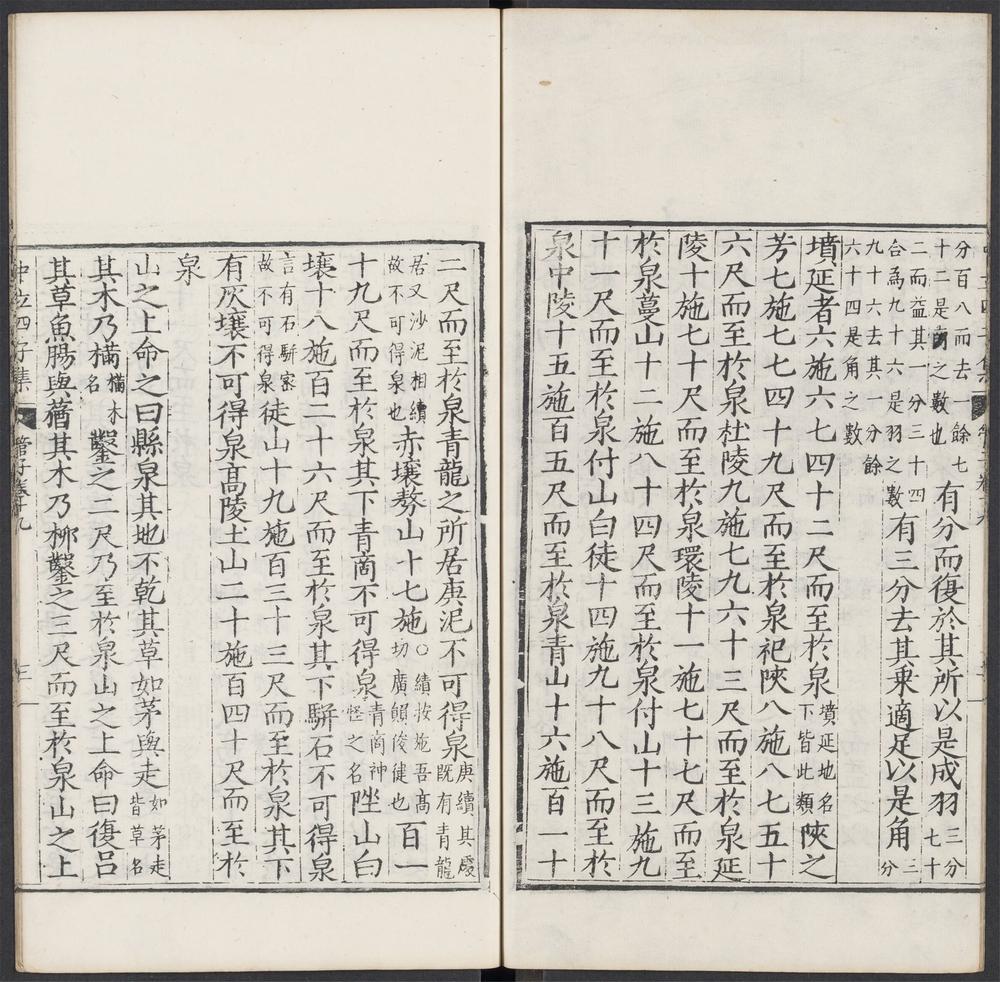 分百八而去一餘七
十二是商之數也
有分而復於其所以是成羽
三分
七十
二而益其一分三十四
合爲九十六是羽之數
有三分去其乗適足以是角
三
分
九十六去其一分餘
六十四是角之數
墳延者六施六七四十二尺而至於泉
墳延地名
下皆此類
陜之
芳七施七七四十九尺而至於泉祀陜八施八七五十
六尺而至於泉杜陵九施七九六十三尺而至於泉延
陵十施七十尺而至於泉環陵十一施七十七尺而至
於泉蔓山十二施八十四尺而至於泉付山十三施九
十一尺而至於泉付山白徒十四施九十八尺而至於
泉中陵十五施百五尺而至於泉青山十六施百一十
二尺而至於泉青龍之所居庚泥不可得泉
庚續其處
既有青龍
居又沙泥相續
故不可得泉也
赤壤㔟山十七施
○續按施吾髙
切廣韻俊健也
百一
十九尺而至於泉其下青商不可得泉
青商神
怪之名
陞山白
壤十八施百二十六尺而至於泉其下駢石不可得泉
言有石駢宻
故不可得泉
徒山十九施百三十三尺而至於泉其下
有灰壤不可得泉髙陵土山二十施百四十尺而至於
泉
山之上命之曰縣泉其地不乾其草如茅與走
如茅走
皆草名
其木乃樠
樠木
名
鑿之二尺乃至於泉山之上命曰復呂
其草魚腸與蕕其木乃桺鑿之三尺而至於泉山之上
中立四子集
管子卷十九
三